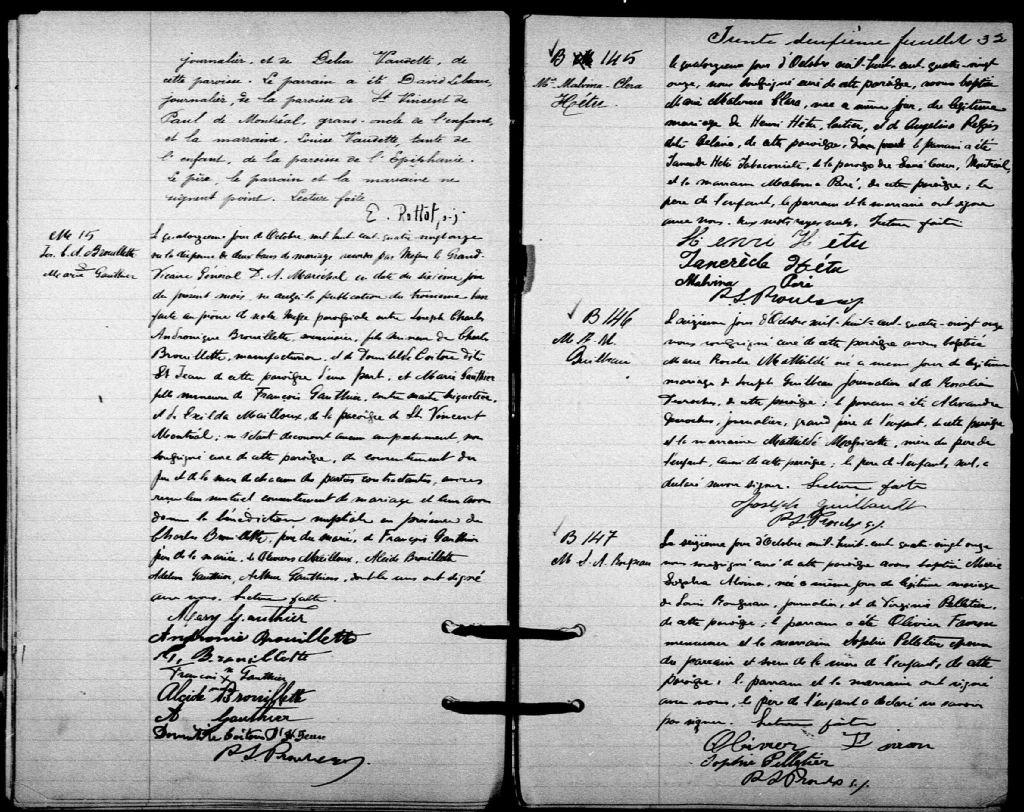 journalier, et de Delia Vaudette, de
cette paroisse. Le parrain a été David Lebeau,
journalier, de la paroisse de St Vincent de
Paul de Montréal, grand-oncle de l'enfant,
et la marraine, Louise Vaudette, tante de
l'enfant, de la paroisse de l'Epiphanie.
Le père, le parrain et la marraine ne
signent point. Lecture faite
E. Pottot, p.j.
M 15
Jos. C. A. Brouillette
Marie Gauthier
Le quatorzieme jour d'Octobre, mil huit cent quatre vingt onze
vu la dispense de deux bans de mariage accordée par Mngeur le Grand
Vicaire Général L. A. Maréchal en date du sixième jour
du présent mois, vu aussi la publication du troisieme ban
faite au prone de notre Messe paroissiale entre Joseph Charles
Andronique Brouillette, menuisier, fils mineur de Charles
Brouillette, manufacturier, et de Domitilde
St Jean de cette paroisse d'une part, et Marie Gauthier
fille mineure de François Gauthier, contre maitre
et de Exilda Mailloux, de la paroisse de St Vincent
Montréal; ne s'étant decouvert aucun empechement, nous
soussigné curé de cette paroisse, du consentement du
père et de la mere de chacune des parties contractantes, avons
reçu leur mutuel consentement de mariage et leur avons
donné la bénédiction nuptiale en présence de
Charles Brouillette, père du marié, de François Gauthier
père de la mariée, de Oliviers Mailloux, Alcide Brouillette
Gauthier, Arthur Gauthier, dont les uns ont signé
avec nous. Lecture faite.
Mary Gauthier
Andronic Brouillette
Brouillette
François x Gauthier
Alcide Brouillette
A Gauthier
St Jean
P S Proulx
Trente deuxième feuillet 32
B 145
Mie Malvina-Clara
Hétu
Le quatorzieme jour d'Octobre mil-huit-cent-quatre-vingt
onze, nous soussigné curé de cette paroisse, avons baptisé
Marie Malvina Clara, née a même jour, du légitime
mariage de Henri Hétu, et d'Angelina
de cette paroisse, le parrain a été
Tancrede Hétu Tabaconiste, de la paroisse du Sacré Coeur, Montreal,
et la marraine Malvina Paré, de cette paroisse; le
père de l'enfant, le parrain et la marraine ont signé
avec nous. mots rayés nuls. Lecture faite
Henri Hétu
Tancrède Hétu
Malvina Paré
P. S. Proulx
B 146
M R. M.
Guilbau
Le seizieme jour d'Octobre mil-huit-cent-quatre-vingt onze
nous soussigné curé de cette paroisse avons baptisé
Marie Rosalie Mathilde née a meme jour de légitime
mariage de Joseph Guilbau journalier et de Rosalie
Desroches, de cette paroisse; le parrain a été Alexandre
Desroches, journalier, grand père de l'enfant, de cette paroisse
et la marraine Mathilde, mère du père de
l'enfant, aussi de cette paroisse; le pere de l'enfant, seul, a
declaré savoir signer. Lecture faite
Joseph Guilbault
P S Proulx
B 147
M S. A.
Le seizieme jour d'Octobre mil-huit-cent-quatre-vingt onze
nous soussigné curé de cette paroisse avons baptisé Marie
Sophie Alvina, née a même jour de légitime mariage
de Louis, journalier, et de Virginie Pelletier,
de cette paroisse; le parrain a été Olivier
menuisier et la marraine Sophie Pelletier epouse
du parrain et soeur de la mère de l'enfant, de cette
paroisse; le parrain et la marraine ont signé
avec nous, le père de l'enfant a déclaré ne savoir
pas signer. Lecture faite
Olivier
Sophie Pelletier
P S Proulx